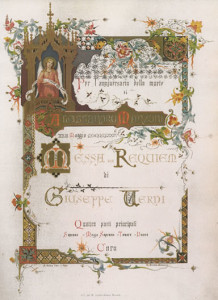 Per l'anniversario della morte
di
Alessandro Manzoni
Messa da Requiem
di
Giuseppe Verdi
Quattro parti principali
Soprano - Mezzo Soprano - Tenore - Basso
e Coro